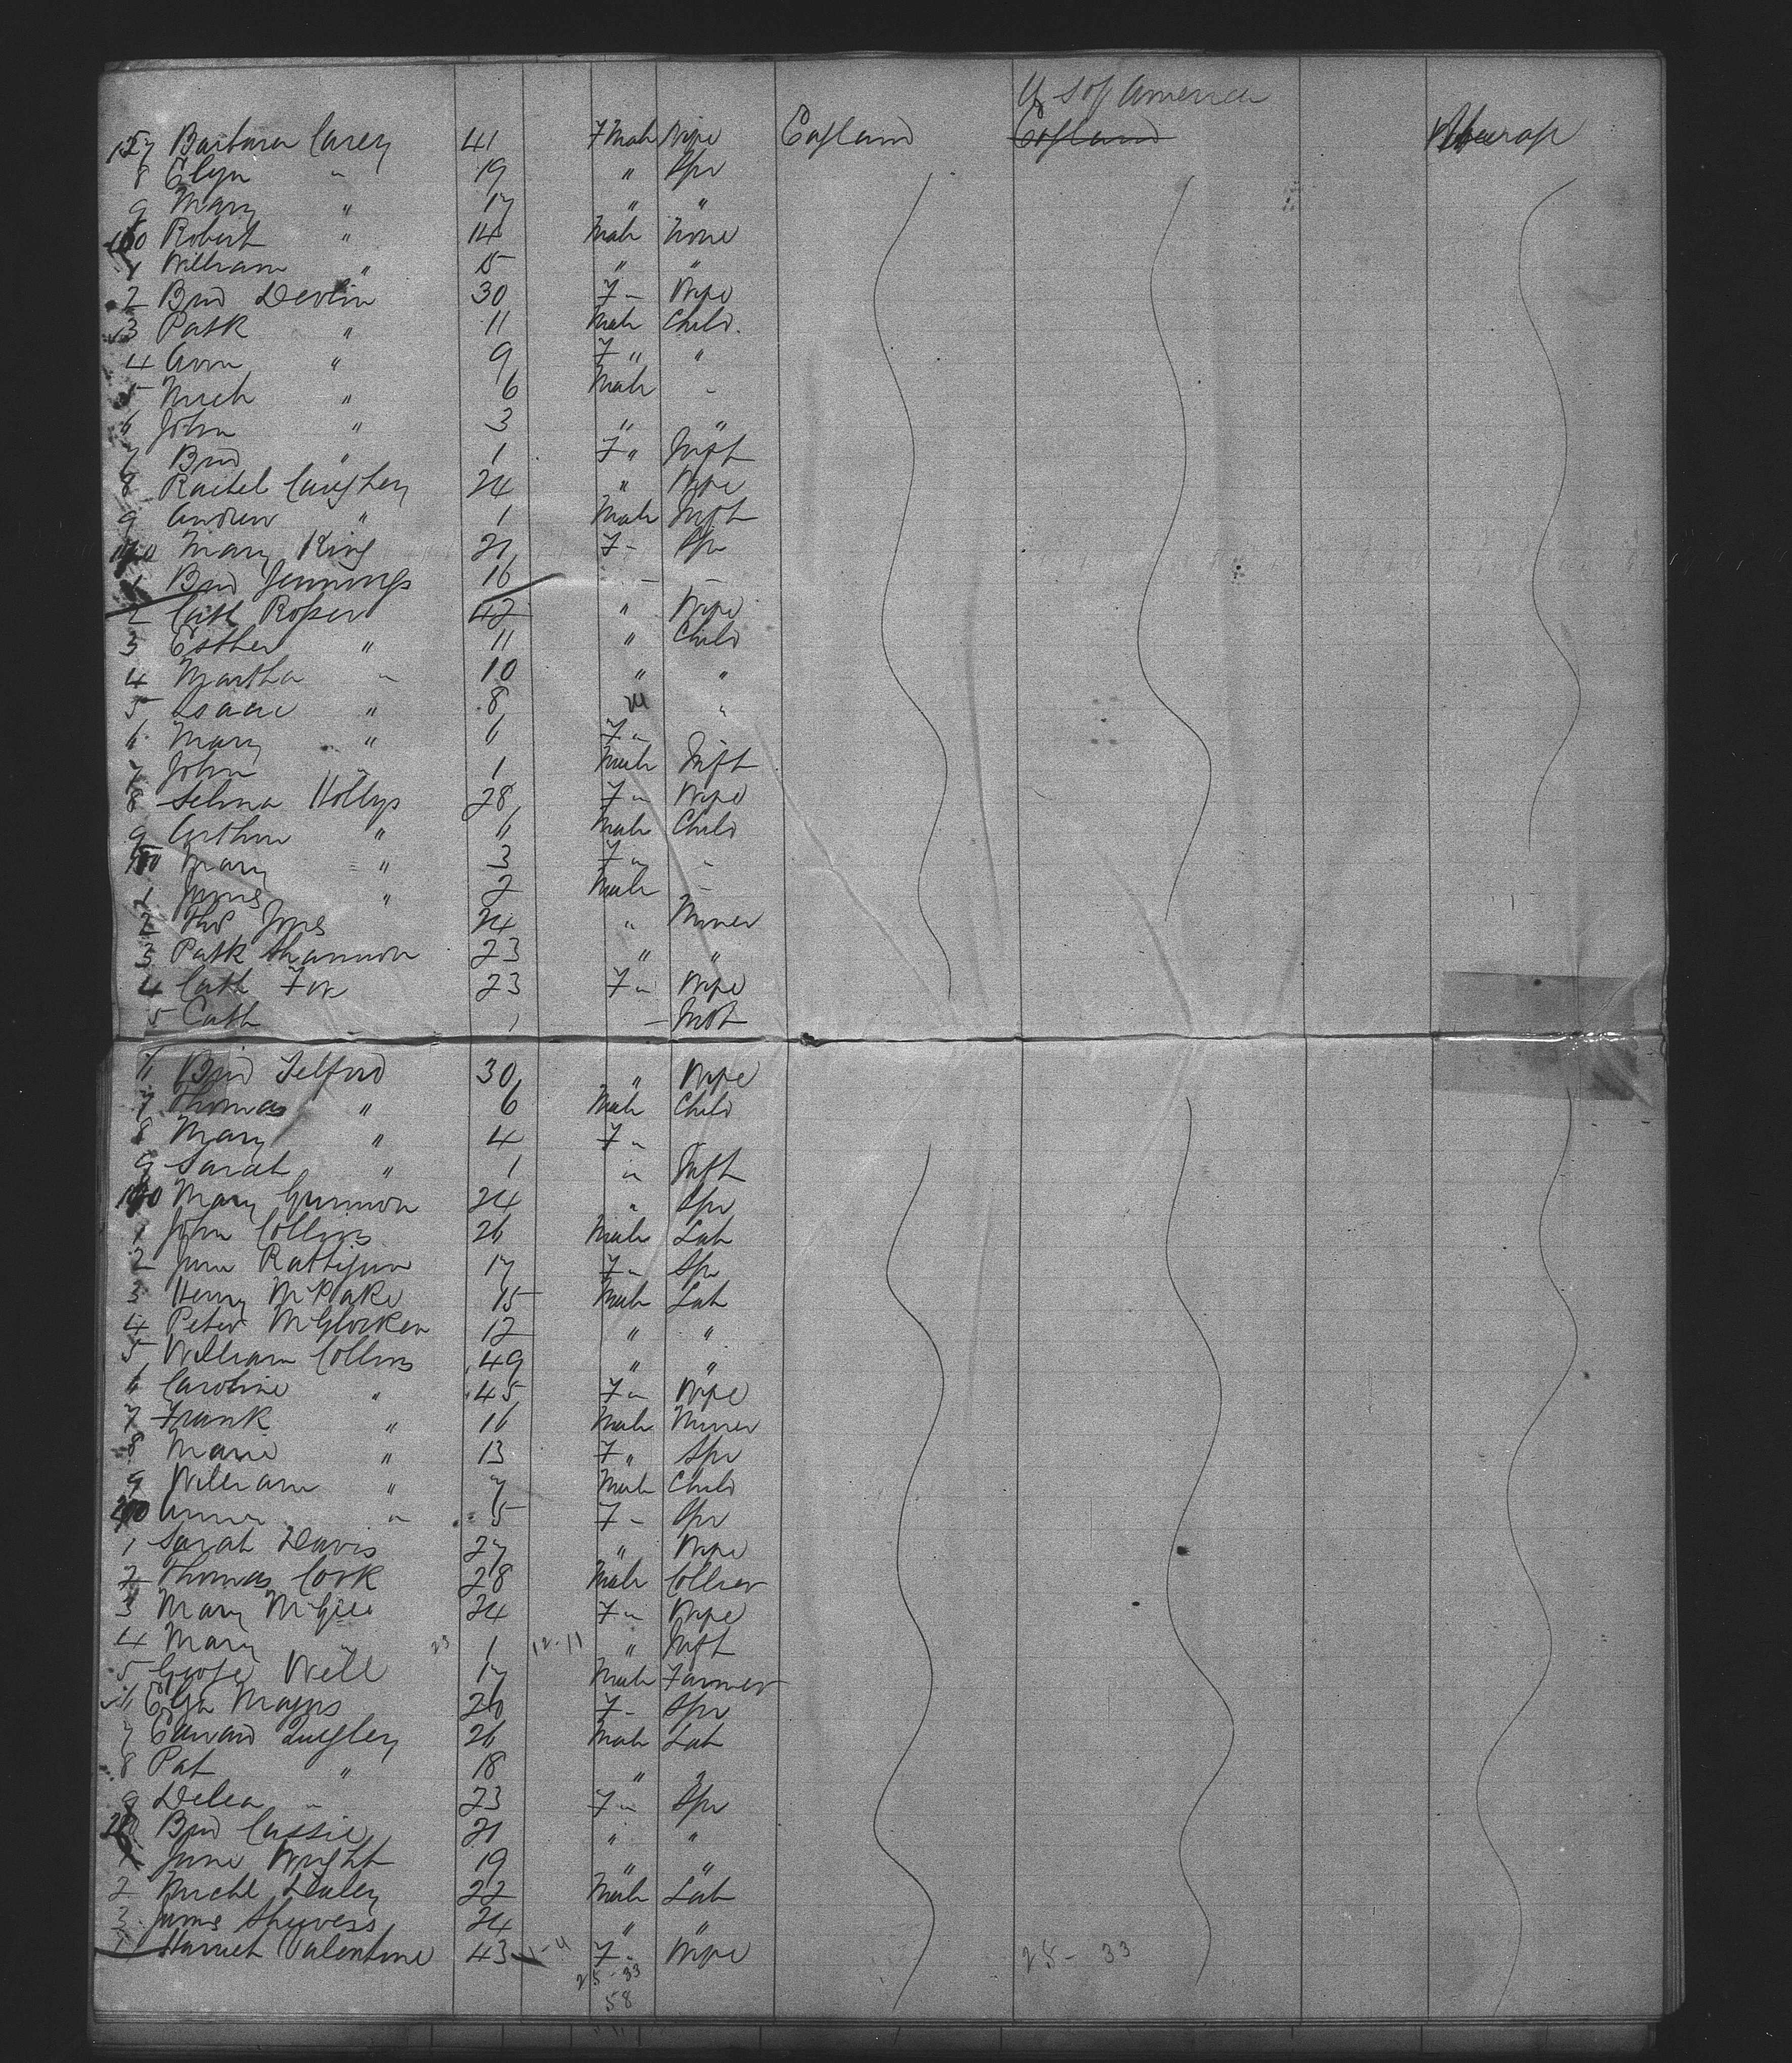 U S of America
157 Barbara Carey 41 F Male Wife England England Steerage
8 Eliza " 19 " Spr
9 Mary " 17 " "
160 Robert " 14 Male None
1 William " 15 " "
2 Brid Devlin 30 F " Wife
3 Patk " 11 Male Child
4 Ann " 9 F " "
5 Mich " 6 Male "
6 John " 3 " "
7 Brid " 1 F " Inft
8 Rachel Caughey 24 " Wife
9 Andrew " 1 Male Inft
170 Mary King 21 F " Spr
1 Brid Jennings 16 " "
2 Cath Roper 42 " Wife
3 Esther " 11 " Child
4 Martha " 10 " "
5 Isaac " 8 M "
6 Mary " 6 F "
7 John " 1 Male Inft
8 Selina Hollys 28 F " Wife
9 Arthur " 6 Male Child
180 Mary " 3 F " "
1 James " 2 Male "
2 Thos Jones 24 " Miner
3 Patk Shannon 23 " "
4 Cath Fox 23 F " Wife
5 Cath 1 " Inft
6 Brid Telford 30 " Wife
7 Thomas " 6 Male Child
8 Mary " 4 F "
9 Sarah " 1 " Inft
190 Mary Gunnion 24 " Spr
1 John Collins 26 Male Lab
2 Jane Rattigan 17 F " Spr
3 Henry McPake 15 Male Lab
4 Peter McGlocken 12 " "
5 William Collins 49 " "
6 Caroline " 45 F " Wife
7 Frank " 16 Male Miner
8 Marie " 13 F " Spr
9 William " 7 Male Child
200 Annie " 5 F " Spr
1 Sarah Davis 27 " Wife
2 Thomas Cork 28 Male Collier
3 Mary McGee 24 F " Wife
4 Mary " 23 1 12-11 " Inft
5 George Will 17 Male Farmer
6 Eliza Magus 20 F " Spr
7 Edward Quigley 26 Male Lab
8 Pat " 18 " "
9 Delia " 23 F " Spr
210 Brid Cassie 21 " "
1 Jane Wright 19 " "
2 Michl Daley 22 Male Lab
3 James 24 " "
Harriet Valentine 43 F " Wife 25 - 33
25-33
58